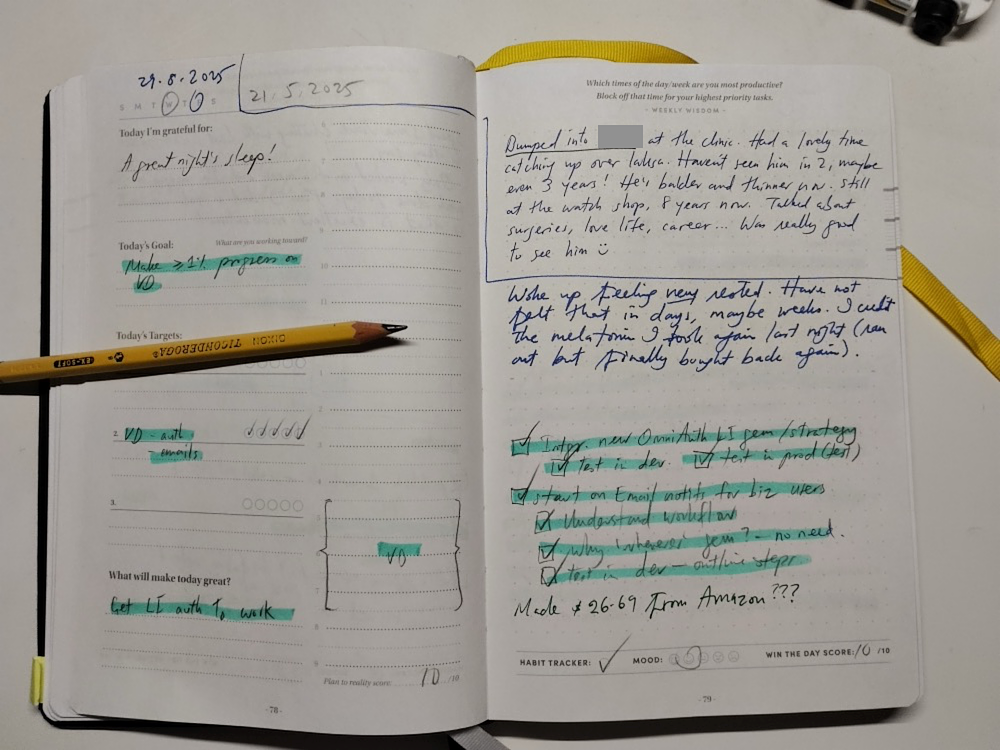 29.8.2025
21.5.2025
S M T W T F S
Today I'm grateful for:
A great night's sleep!
Today's Goal:
What are you working toward?
Make ≥1% progress on
VD
Today's Targets:
DIXON TICONDEROGA®
EX-SOFT
2. VD - auth
- emails
3.
What will make today great?
Get LI auth to work
6
7
8
9
10
11
1
2
3
4
5
VD
7
8
9
Plan to reality score: 10 /10
- 78 -
Which times of the day/week are you most productive?
Block off that time for your highest priority tasks.
- WEEKLY WISDOM -
Bumped into at the clinic. Had a lovely time
catching up over laksa. Haven't seen him in 2, maybe
even 3 years! He's balder and thinner now. Still
at the watch shop, 8 years now. Talked about
surgeries, love life, career... Was really good
to see him
Woke up feeling very rested. Have not
felt that in days, maybe weeks. I credit
the melatonin I took again last night (ran
out but finally bought back again).
Intgr. new OmniAuth LI gem/strategy
test in dev. test in prod (test)
start on Email notifs for biz users
Understand workflow
Why 'whenever' gem? - no need.
test in dev - outline steps
Made $26.69 from Amazon???
HABIT TRACKER: ✓ MOOD: WIN THE DAY SCORE: 10 /10
- 79 -